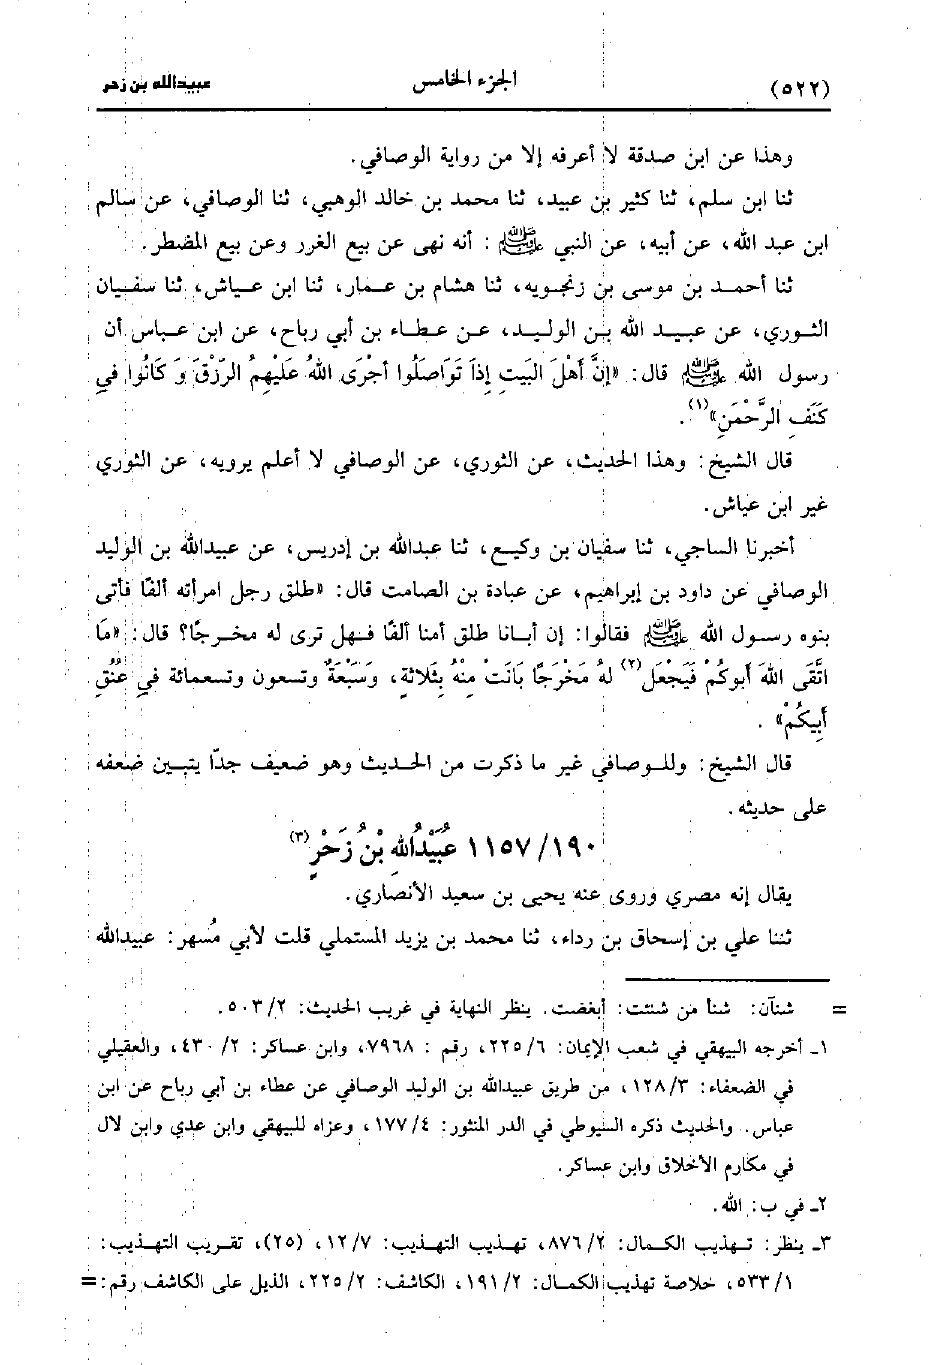 (٥٢٢) الجزء الخامس عبيدالله بن زحر
وهذا عن ابن صدقة لا أعرفه إلا من رواية الوصافي.
ثنا ابن سلم، ثنا كثير بن عبيد، ثنا محمد بن خالد الوهبي، ثنا الوصافي، عن سالم
ابن عبد الله، عن أبيه، عن النبي ﷺ : أنه نهى عن بيع الغرر وعن بيع المضطر.
ثنا أحمد بن موسى بن زنجويه، ثنا هشام بن عمار، ثنا ابن عياش، ثنا سفيان
الثوري، عن عبيد الله بن الوليد، عن عطاء بن أبي رباح، عن ابن عباس أن
رسول الله ﷺ قال: «إنَّ أَهْلَ البَيتِ إذاَ تَوَاصَلُوا أجْرَى اللهُ عَلَيْهِمُ الرّزْقَ وَ كَانُوا في
كَنَفِ الرَّحْمَنِ»(١).
قال الشيخ: وهذا الحديث، عن الثوري، عن الوصافي لا أعلم يرويه، عن الثوري
غير ابن عياش.
أخبرنا الساجي، ثنا سفيان بن وكيع، ثنا عبدالله بن إدريس، عن عبيدالله بن الوليد
الوصافي عن داود بن إبراهيم، عن عبادة بن الصامت قال: «طلق رجل امرأته ألفًا فأتى
بنوه رسول الله ﷺ فقالوا: إن أبانا طلق أمنا ألفًا فهل ترى له مخرجًا؟ قال: «مَا
اتَّقَى اللهَ أَبوكُمْ فَيَجْعَل(٢) لهُ مَخْرَجًا بَانَتْ مِنْهُ بِثَلاثةٍ، وَسَبْعَةٌ وتسعون وتسعمائة في عُنُقِ
أَبِيكُمْ» .
قال الشيخ: وللوصافي غير ما ذكرت من الحديث وهو ضعيف جدًا يتبين ضعفه
على حديثه.
١١٥٧/١٩٠ عُبَيْدُاللهِ بْنُ زَحْرٍ(٣)
يقال إنه مصري وروى عنه يحيى بن سعيد الأنصاري.
ثنا علي بن إسحاق بن رداء، ثنا محمد بن يزيد المستملي قلت لأبي مُسهر: عبيدالله
= شنآن: شنأ من شنئت: أبغضت. ينظر النهاية في غريب الحديث: ٥٠٣/٢.
١ـ أخرجه البيهقي في شعب الإيمان: ٢٢٥/٦، رقم : ٧٩٦٨، وابن عساكر: ٤٣٠/٢، والعقيلي
في الضعفاء: ١٢٨/٣، من طريق عبيدالله بن الوليد الوصافي عن عطاء بن أبي رباح عن ابن
عباس. والحديث ذكره السيوطي في الدر المنثور: ١٧٧/٤، وعزاه للبيهقي وابن عدي وابن لال
في مكارم الأخلاق وابن عساكر.
٢ـ في ب: الله.
٣ـ ينظر: تهذيب الكمال: ٨٧٦/٢، تهذيب التهذيب: ١٢/٧، (٢٥)، تقريب التهذيب:
٥٣٣/١، خلاصة تهذيب الكمال: ١٩١/٢، الكاشف: ٢٢٥/٢، الذيل على الكاشف رقم: =